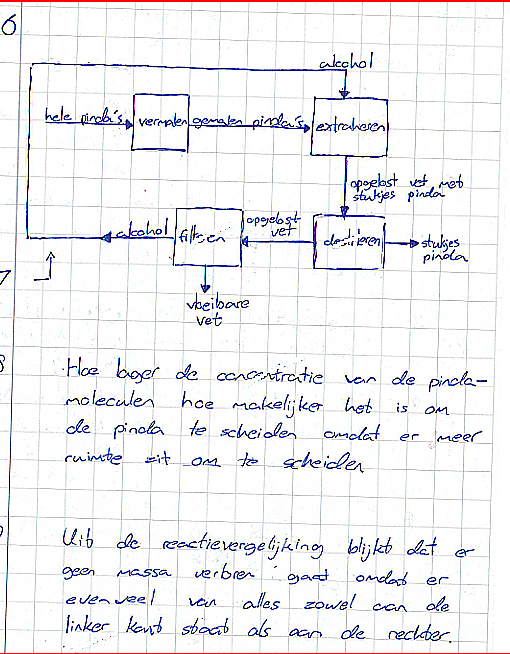 6
alcohol
hele pinda's
vermalen
gemalen pinda's
extraheren
opgelost vet met
stukjes pinda
alcohol
filtreren
opgelost
vet
destileren
stukjes
pinda
7
vloeibare
vet
8
Hoe lager de concentratie van de pinda-
moleculen hoe makelijker het is om
de pinda te scheiden omdat er meer
ruimte zit om te scheiden
Uit de reactievergelijking blijkt dat er
geen massa verloren gaat omdat er
evenveel van alles zowel aan de
linker kant staat als aan de rechter.